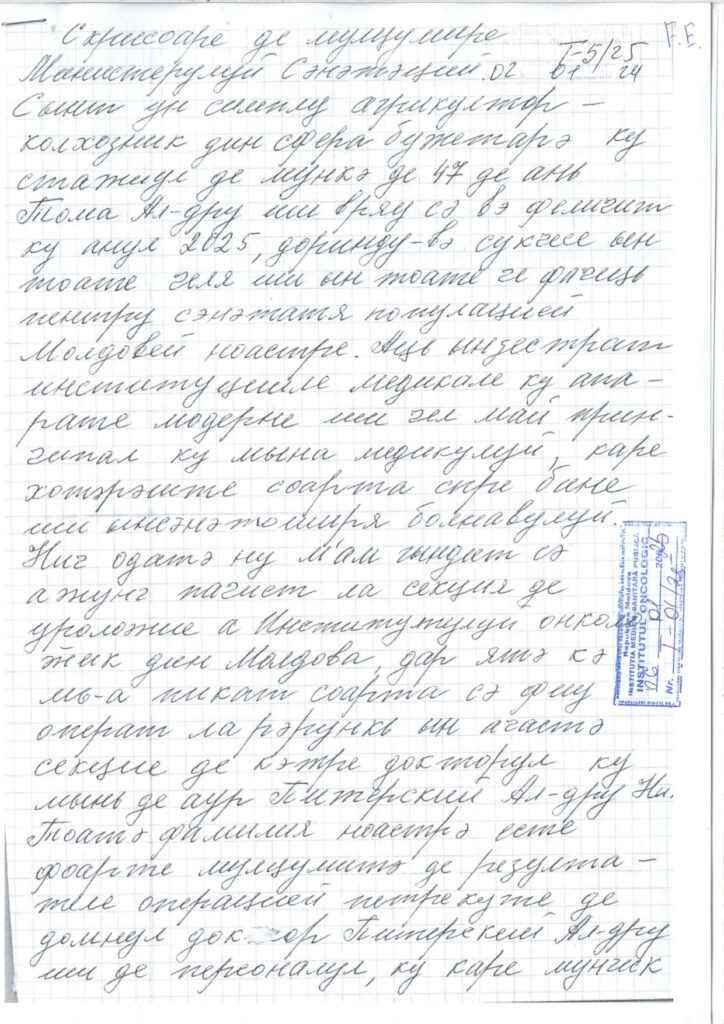 Скрисоаре де мулцумире
F.E.
Т-5/25
Министерулуй Сэнэтэций. 02 01 24
Сынт ун симплу агрикултор –
колхозник дин сфера бужетарэ ку
стажиул де мункэ де 47 де ань
Тома Ал-дру ши вряу сэ вэ феличит
ку анул 2025, доринду-вэ сукчес ын
тоате челя ши ын тоате че фачець
пентру сэнэтатя популацией
Молдовей ноастре. Аць ынзестрат
институцииле медикале ку апа-
рате модерне ши чел май прин-
чипал ку мына медикулуй, каре
хотэрэште соарта спре бине
ши ынсэнэтоширя болнавулуй.
Нич одатэ ну м'ам гындит сэ
ажунг пачиент ла секция де
уроложие а Институтулуй онколо
жик дин Молдова, дар ятэ кэ
мь-а пикат соарта сэ фиу
операт ла рэрункь ын ачастэ
секцие де кэтре докторул ку
мынь де аур Питерский Ал-дру Ни.
Тоатэ фамилия ноастрэ есте
фоарте мулцумитэ де резулта-
теле операцией петрекуте де
домнул док ор Питерский Ал-дру
ши де персоналул, ку каре мунчик
Republica Moldova
INSTITUŢIA MEDICO-SANITARĂ PUBLICĂ
INSTITUTUL ONCOLOGIC
06 01 2025
Nr. T-01/28